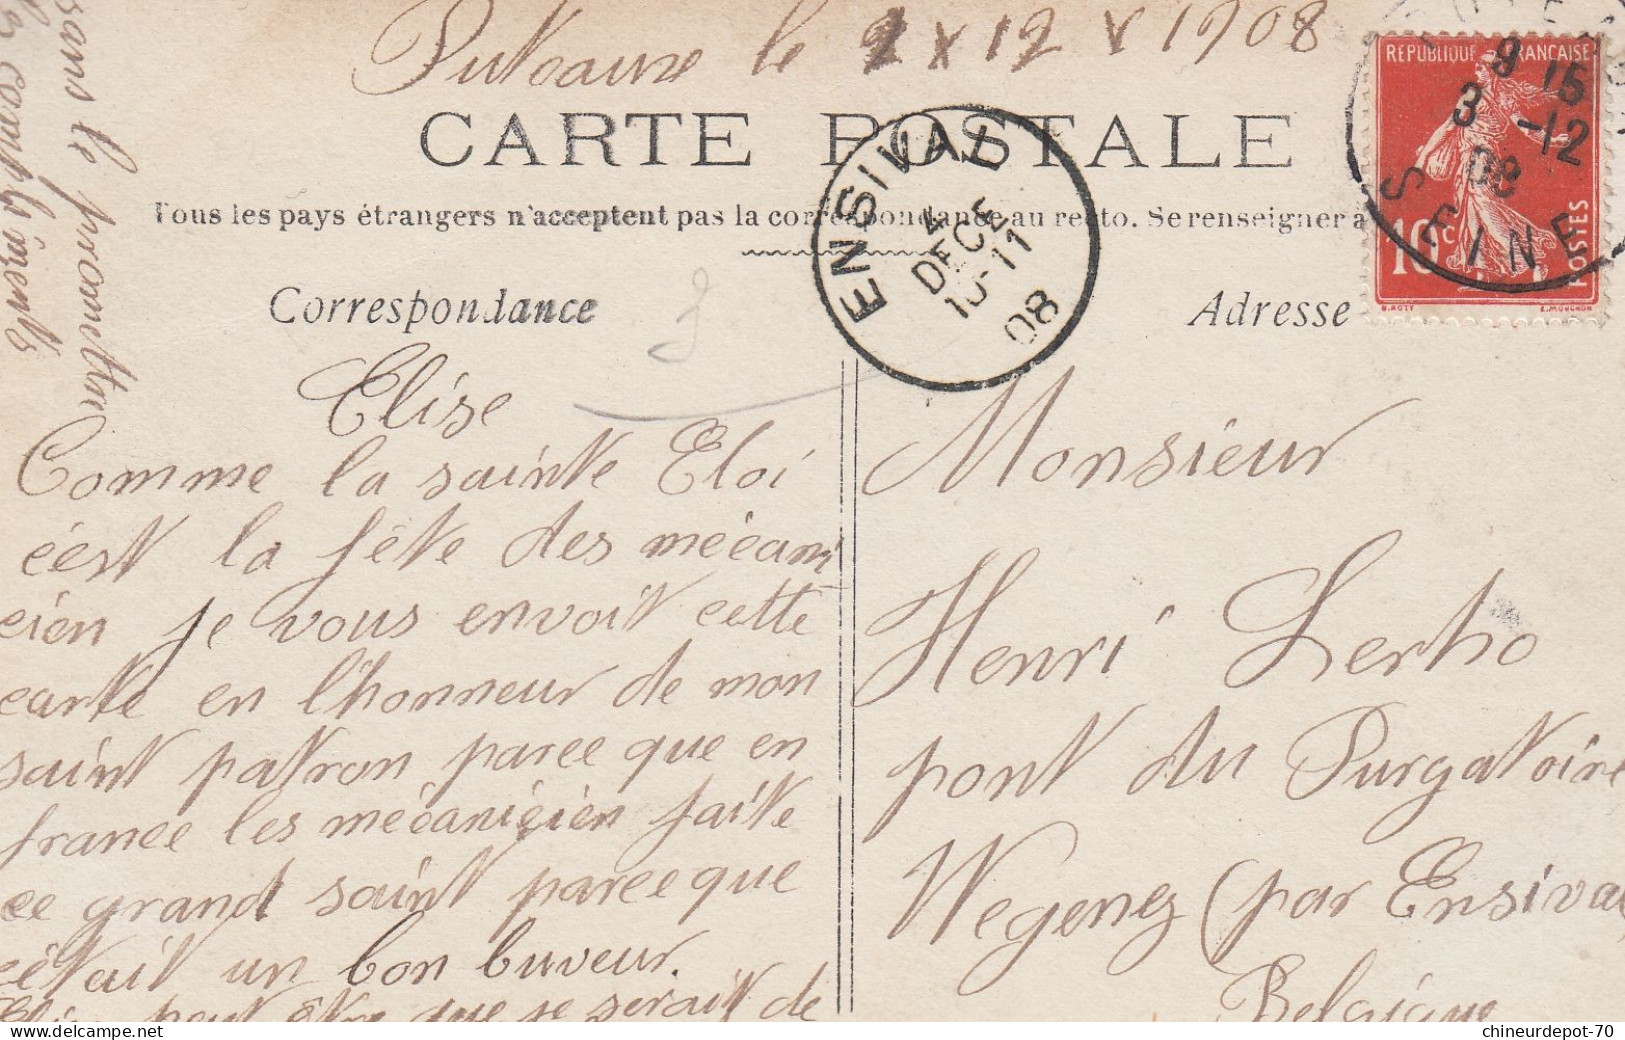 Puteaux le 2 x 12 x 1908
CARTE POSTALE
Tous les pays étrangers n'acceptent pas la correspondance au recto. Se renseigner à
Correspondance
Adresse
REPUBLIQUE FRANCAISE
10c
POSTES
O.ROTY
E.MOUCHON
9 15
3 -12
08
SEINE
ENSIVAL
4
DECE
10-11
08
Elise
Comme la sainte Eloi
c'est la fête des mécani
cien je vous envoit cette
carte en l'honneur de mon
saint patron paree que en
france les mécanicien faite
ce grand saint paree que
c'était un bon buveur.
peut être que je serait de
sans le promettre
compliments
Monsieur
Henri Lerho
pont du Purgatoire
Wegenez (par Ensival
Belgique
chineurdepot-70